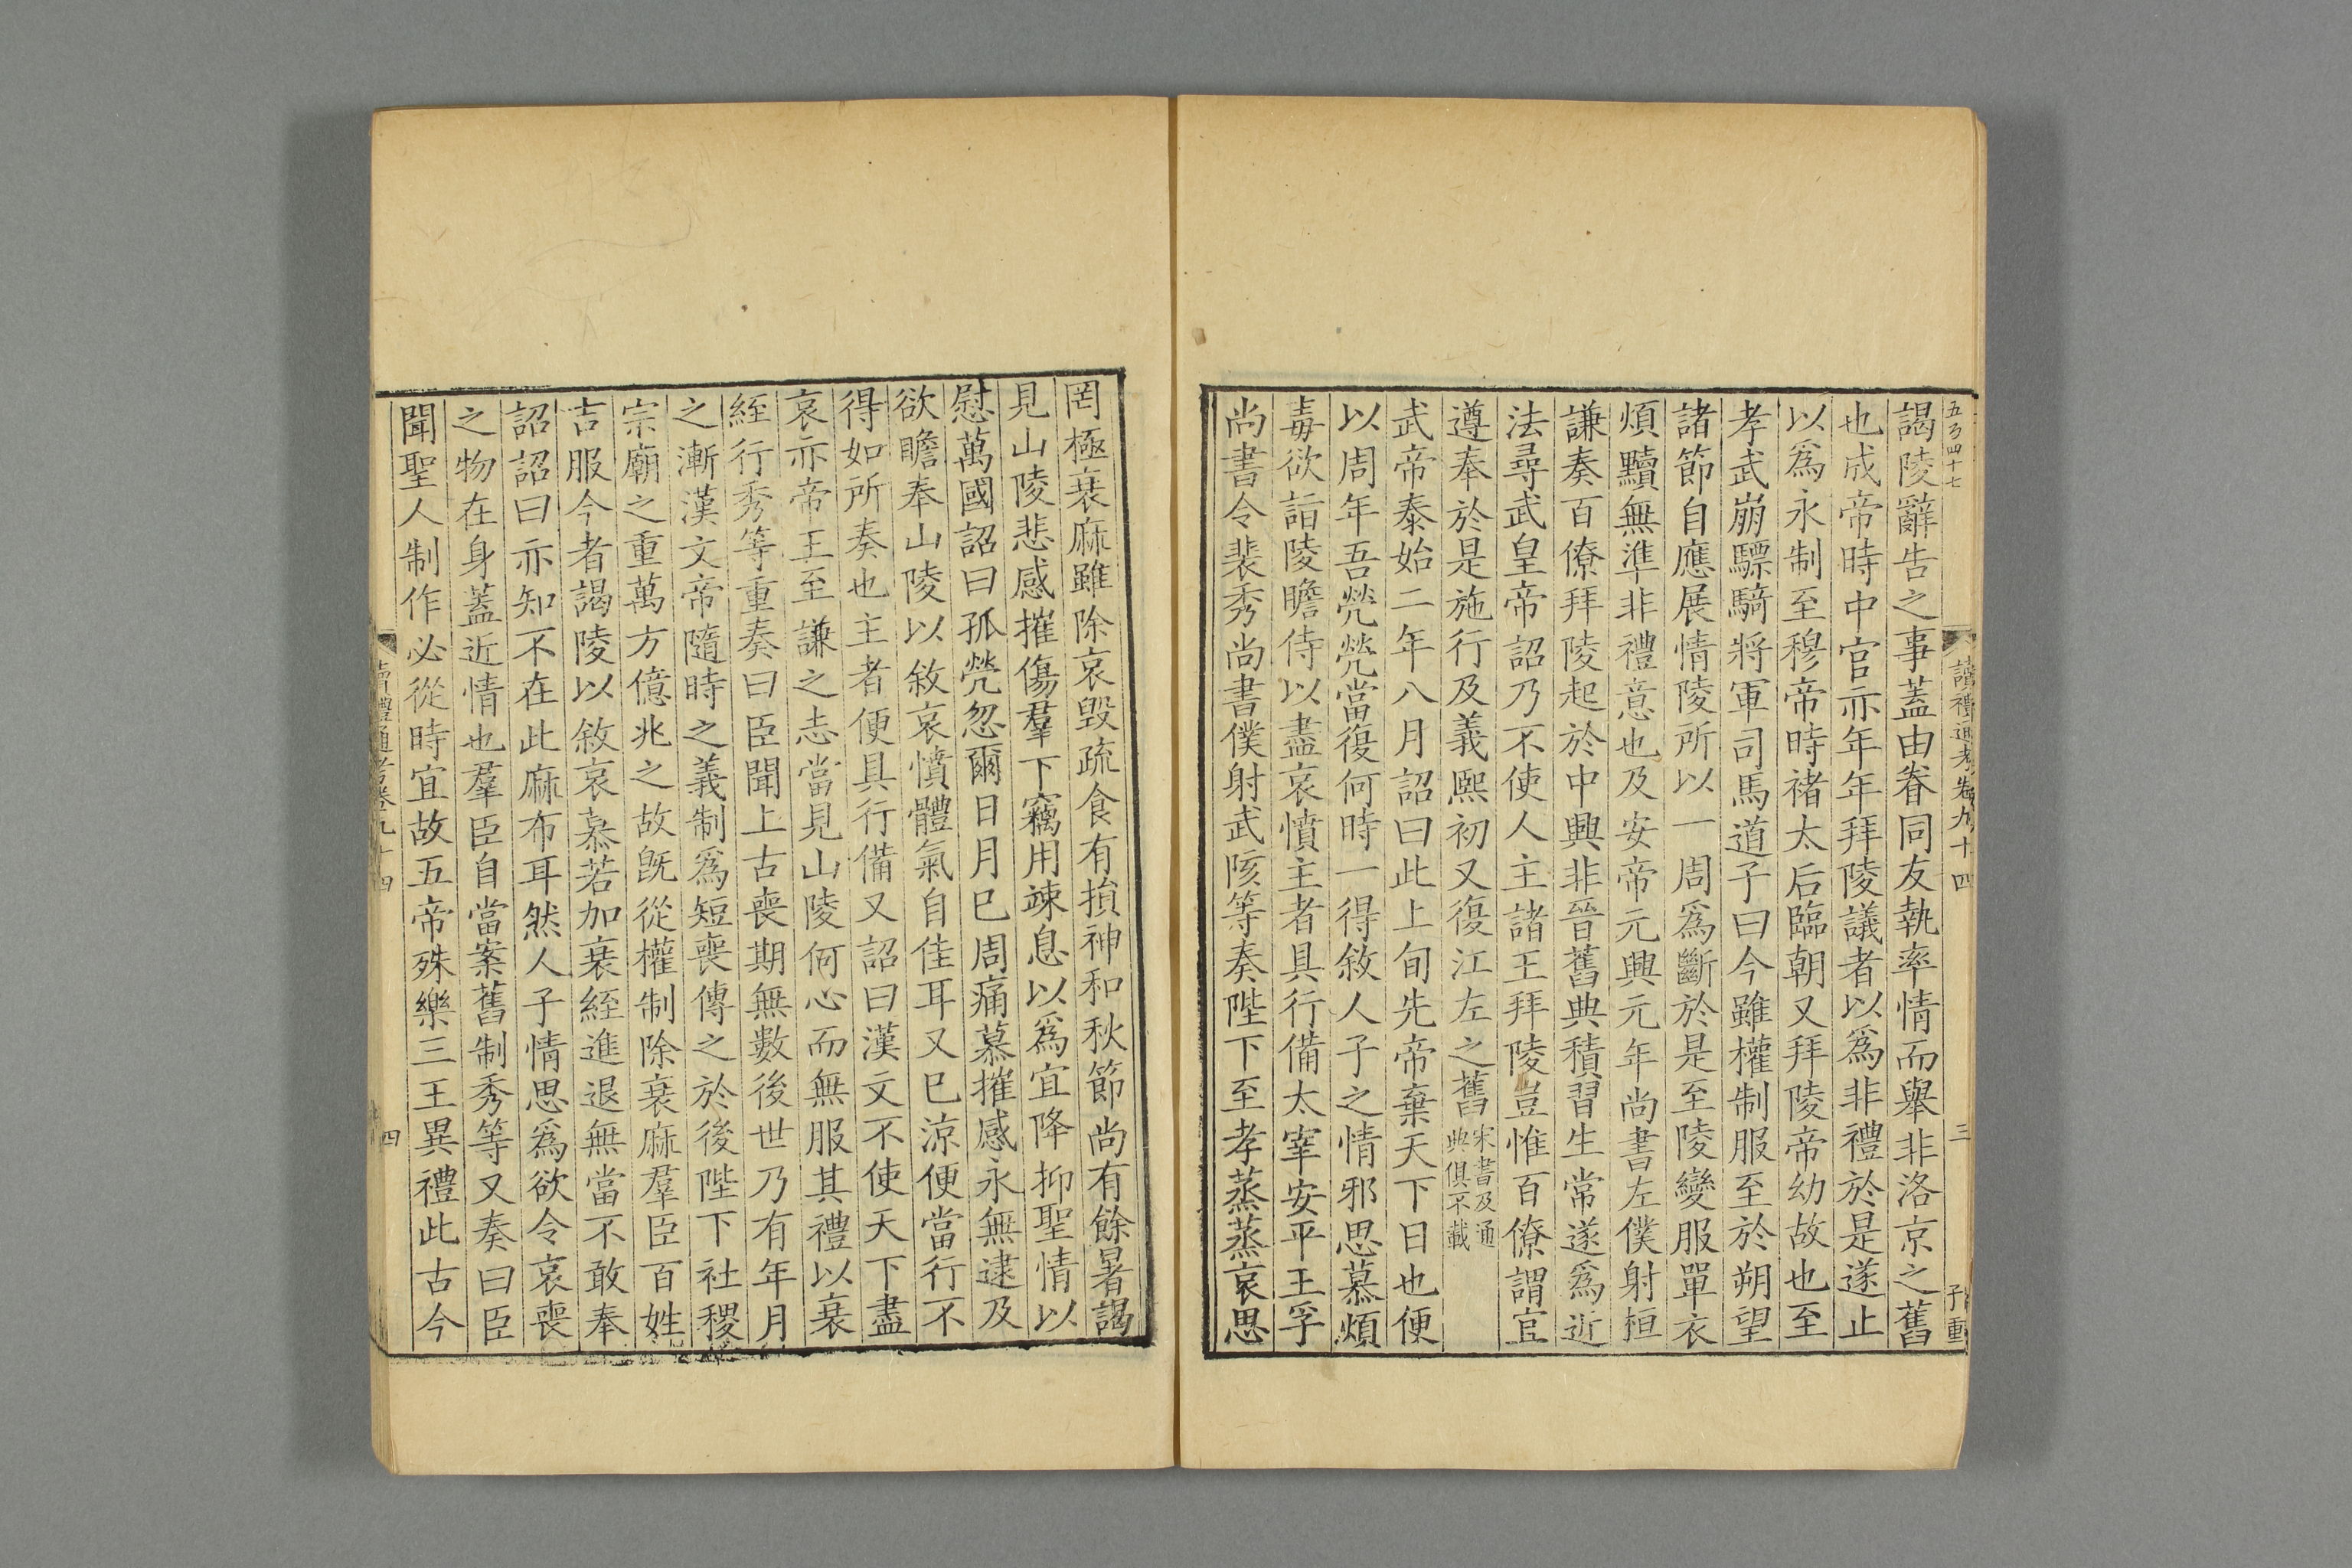 五百四十七 讀禮通考卷九十四 三 子重
謁陵辭告之事蓋由眷同友執率情而舉非洛京之舊
也成帝時中官亦年年拜陵議者以爲非禮於是遂止
以爲永制至穆帝時褚太后臨朝又拜陵帝幼故也至
孝武崩驃騎將軍司馬道子曰今雖權制服至於朔望
諸節自應展情陵所以一周爲斷於是至陵變服單衣
煩黷無準非禮意也及安帝元興元年尚書左僕射桓
謙奏百僚拜陵起於中興非晉舊典積習生常遂爲近
法尋武皇帝詔乃不使人主諸王拜陵豈惟百僚謂宜
遵奉於是施行及義熙初又復江左之舊宋書及通典俱不載
武帝泰始二年八月詔曰此上旬先帝棄天下日也便
以周年吾煢煢當復何時一得敘人子之情邪思慕煩
毒欲詣陵瞻侍以盡哀憤主者具行備太宰安平王孚
尚書令裴秀尚書僕射武陔等奏陛下至孝蒸蒸哀思
罔極衰麻雖除哀毀疏食有損神和秋節尚有餘暑謁
見山陵悲感摧傷羣下竊用竦息以爲宜降抑聖情以
慰萬國詔曰孤煢忽爾日月已周痛慕摧感永無逮及
欲瞻奉山陵以敘哀憤體氣自佳耳又已涼便當行不
得如所奏也主者便具行備又詔曰漢文不使天下盡
哀亦帝王至謙之志當見山陵何心而無服其禮以衰
絰行秀等重奏曰臣聞上古喪期無數後世乃有年月
之漸漢文帝隨時之義制爲短喪傳之於後陛下社稷
宗廟之重萬方億兆之故旣從權制除衰麻羣臣百姓
吉服今者謁陵以敘哀慕若加衰絰進退無當不敢奉
詔詔曰亦知不在此麻布耳然人子情思爲欲令哀喪
之物在身蓋近情也羣臣自當案舊制秀等又奏曰臣
聞聖人制作必從時宜故五帝殊樂三王異禮此古今
讀禮通考卷九十四 四